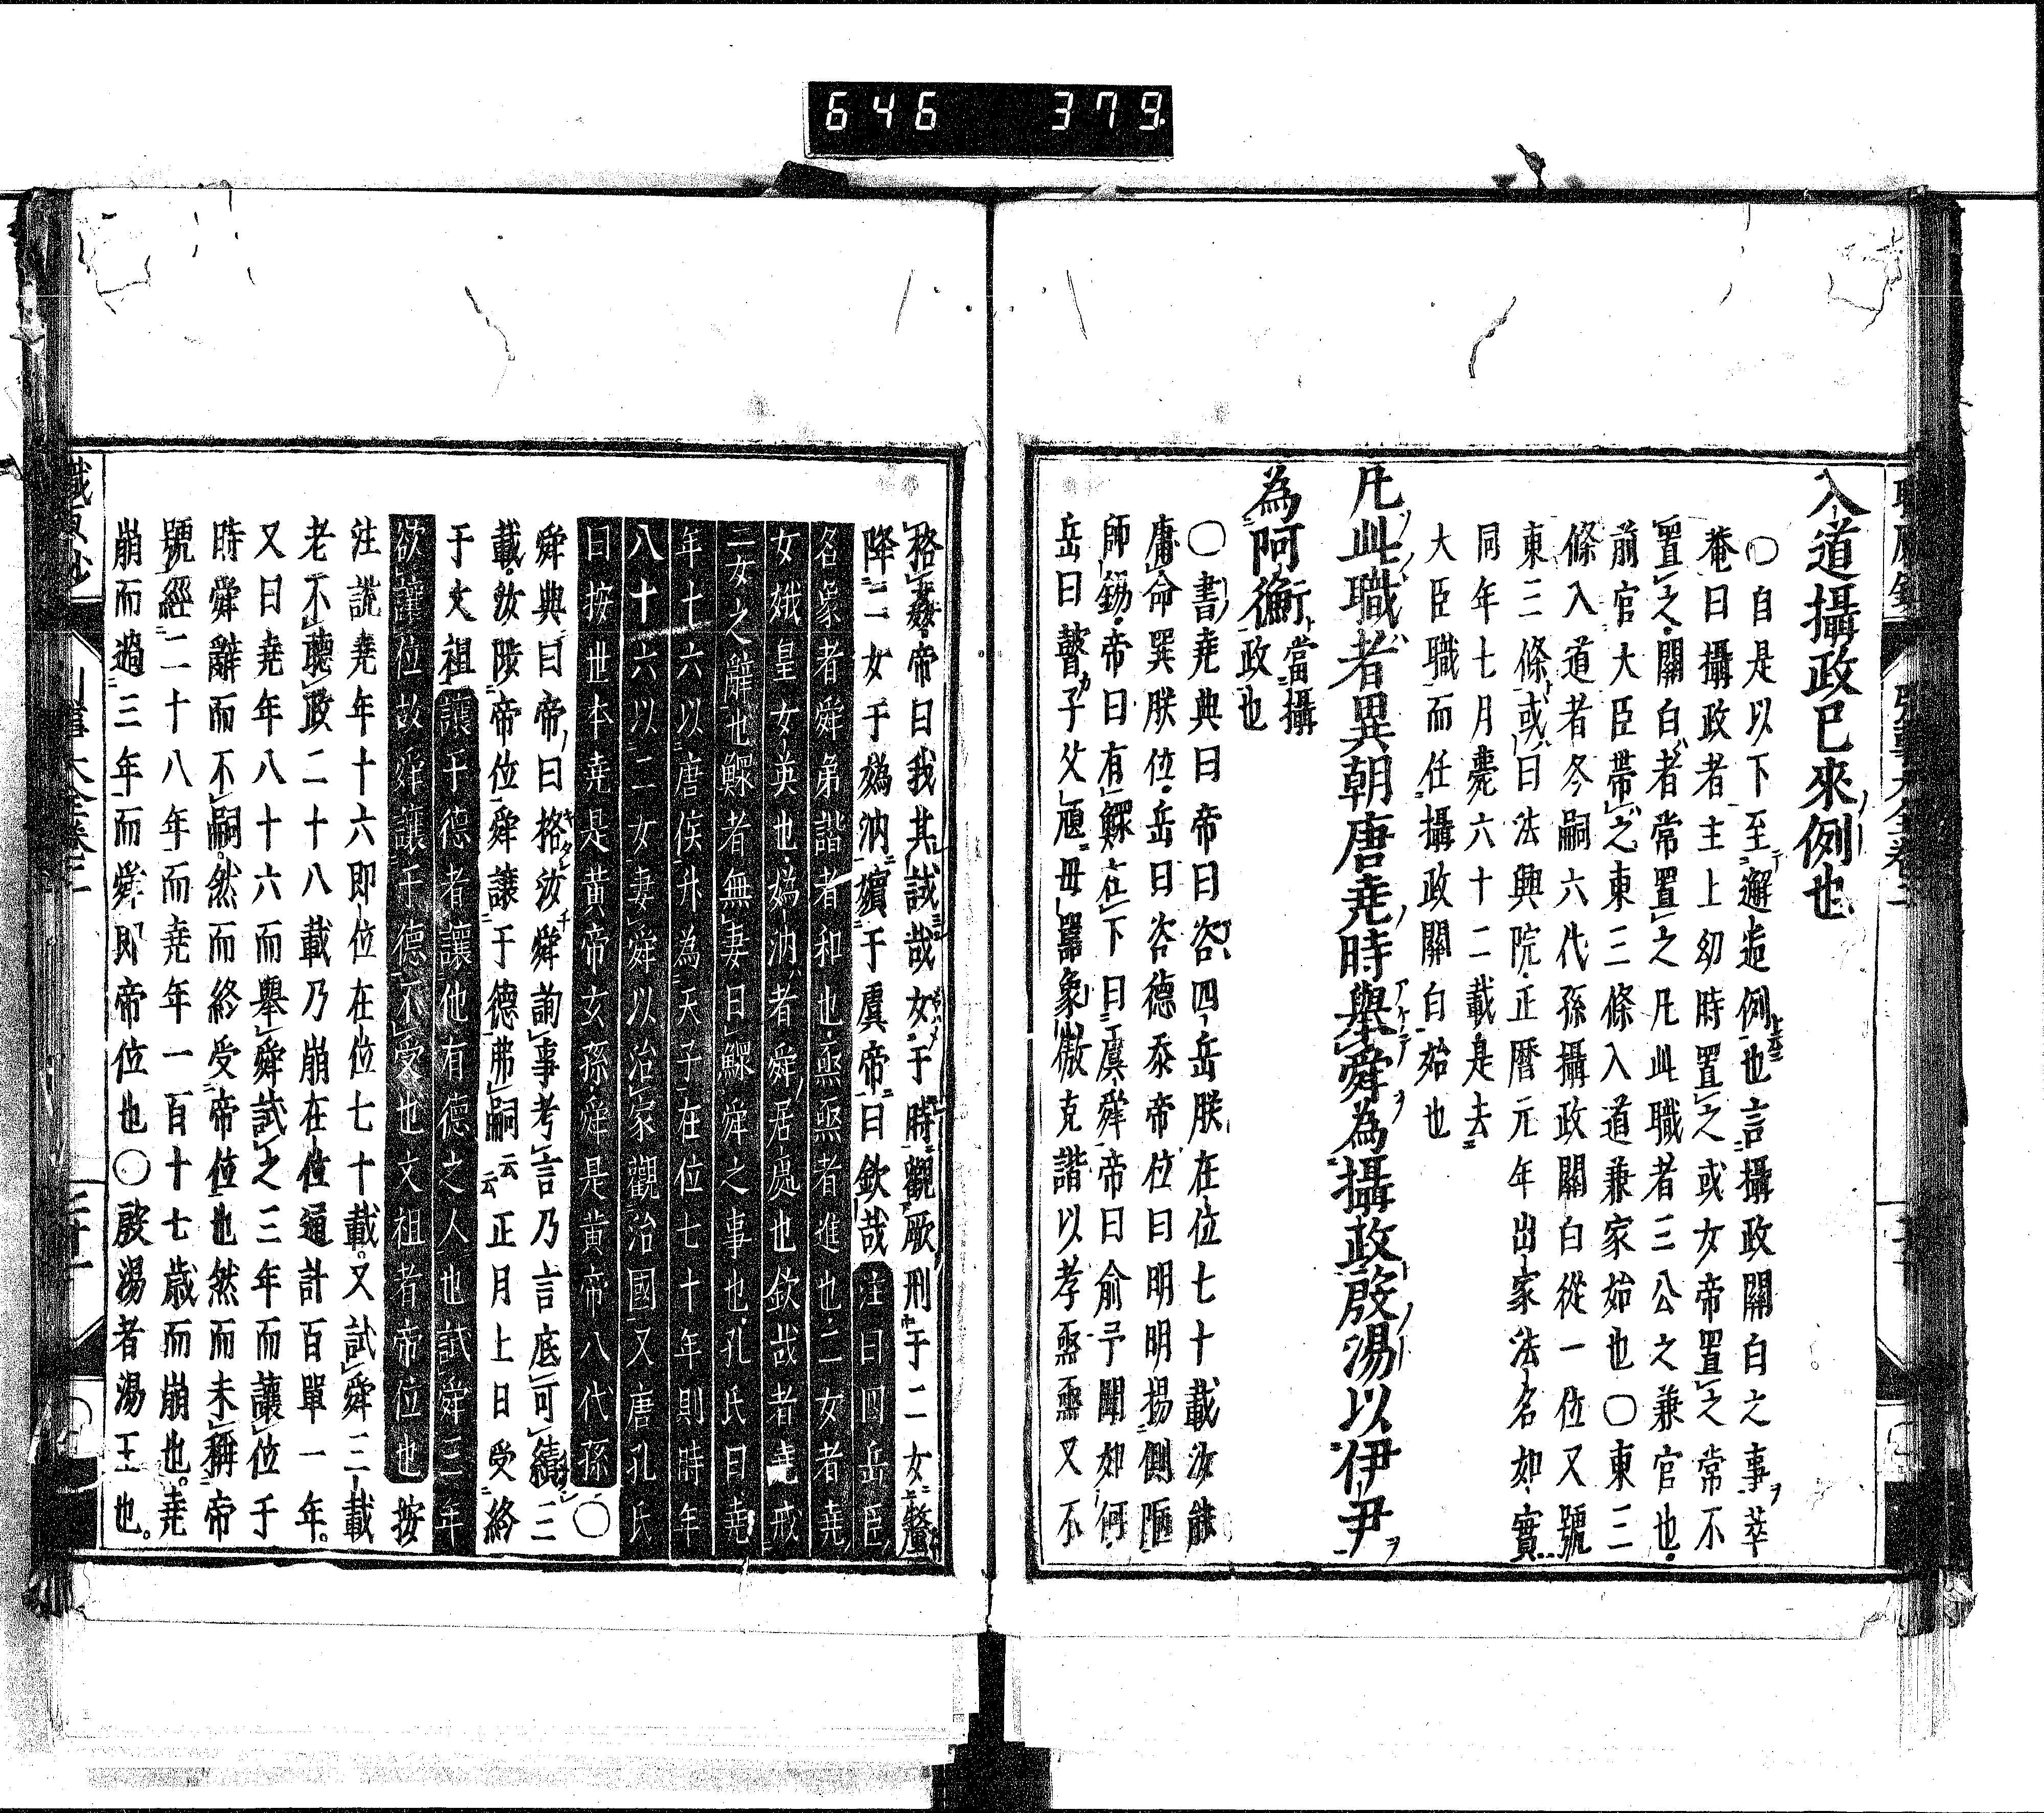 646 379
入道攝政已來例也
〇自是以下至邂逅例也言攝政關白之事莘
菴曰攝政者主上幼時置之或女帝置之常不
置之關白者常置之凡此職者三公之兼官也
前官大臣帶之東三條入道兼家始也〇東三
條入道者冬嗣六代孫攝政關白從一位又號
東三條或曰法興院正曆元年出家法名如實
同年七月薨六十二載是去
大臣職而任攝政關白始也
凡此職者異朝唐堯時舉舜為攝政殷湯以伊尹
為阿衡當攝政也
〇書堯典曰帝曰咨四岳朕在位七十載汝能
庸命巽朕位岳曰否德忝帝位曰明明揚側陋
師錫帝曰有鰥在下曰虞舜帝曰俞予聞如何
岳曰瞽子父頑母嚚象傲克諧以孝烝烝又不
格姦帝曰我其試哉女于時觀厥刑于二女釐
降二女于嬀汭嬪于虞帝曰欽哉註曰四岳臣
名象者舜弟諧者和也烝烝者進也二女者堯
女娥皇女英也嬀汭者舜居處也欽哉者堯戒
二女之辭也鰥者無妻曰鰥舜之事也孔氏曰堯
年十六以唐侯升為天子在位七十年則時年
八十六以二女妻舜以治家觀治國又唐孔氏
曰按世本堯是黃帝玄孫舜是黃帝八代孫〇
舜典曰帝曰格汝舜詢事考言乃言底可績三
載汝陟帝位舜讓于德弗嗣云云正月上日受終
于文祖讓于德者讓他有德之人也試舜三年
欲讓位故舜讓于德不受也文祖者帝位也按
注說堯年十六即位在位七十載又試舜三載
老不聽政二十八載乃崩在位通計百單一年
又曰堯年八十六而舉舜試之三年而讓位于
時舜辭而不嗣然而終受帝位也然而未稱帝
號經二十八年而堯年一百十七歲而崩也堯
崩而過三年而舜即帝位也〇殷湯者湯王也